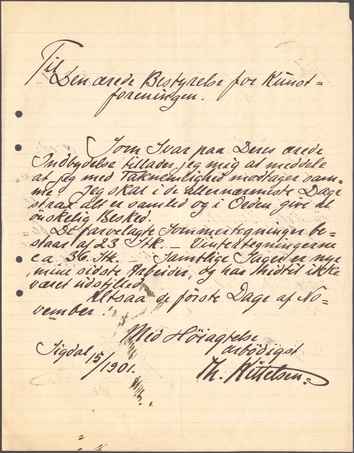 Til
Den ærede Bestyrelse for Kunst=
foreningen.
Som Svar paa Deres ærede
Indbydelse tillader jeg mig at meddele
at jeg med Taknemlighed modtager sam=
me. Jeg skal i de allernærmeste Dage
strax alt er samlet og i Orden, give al
ønskelig Besked.
De farvelagte Sommertegninger be=
staar af 23 Stk. – Vintertegningerne
ca. 36 Stk. – Samtlige Sager er nye
mine sidste Arbeider, og har hidtil ikke
været udstillet.
Altsaa de første Dage af No=
vember!
Med Høiagtelse
ærbødigst
Th. Kittelsen.
Sigdal 15/ 1901.